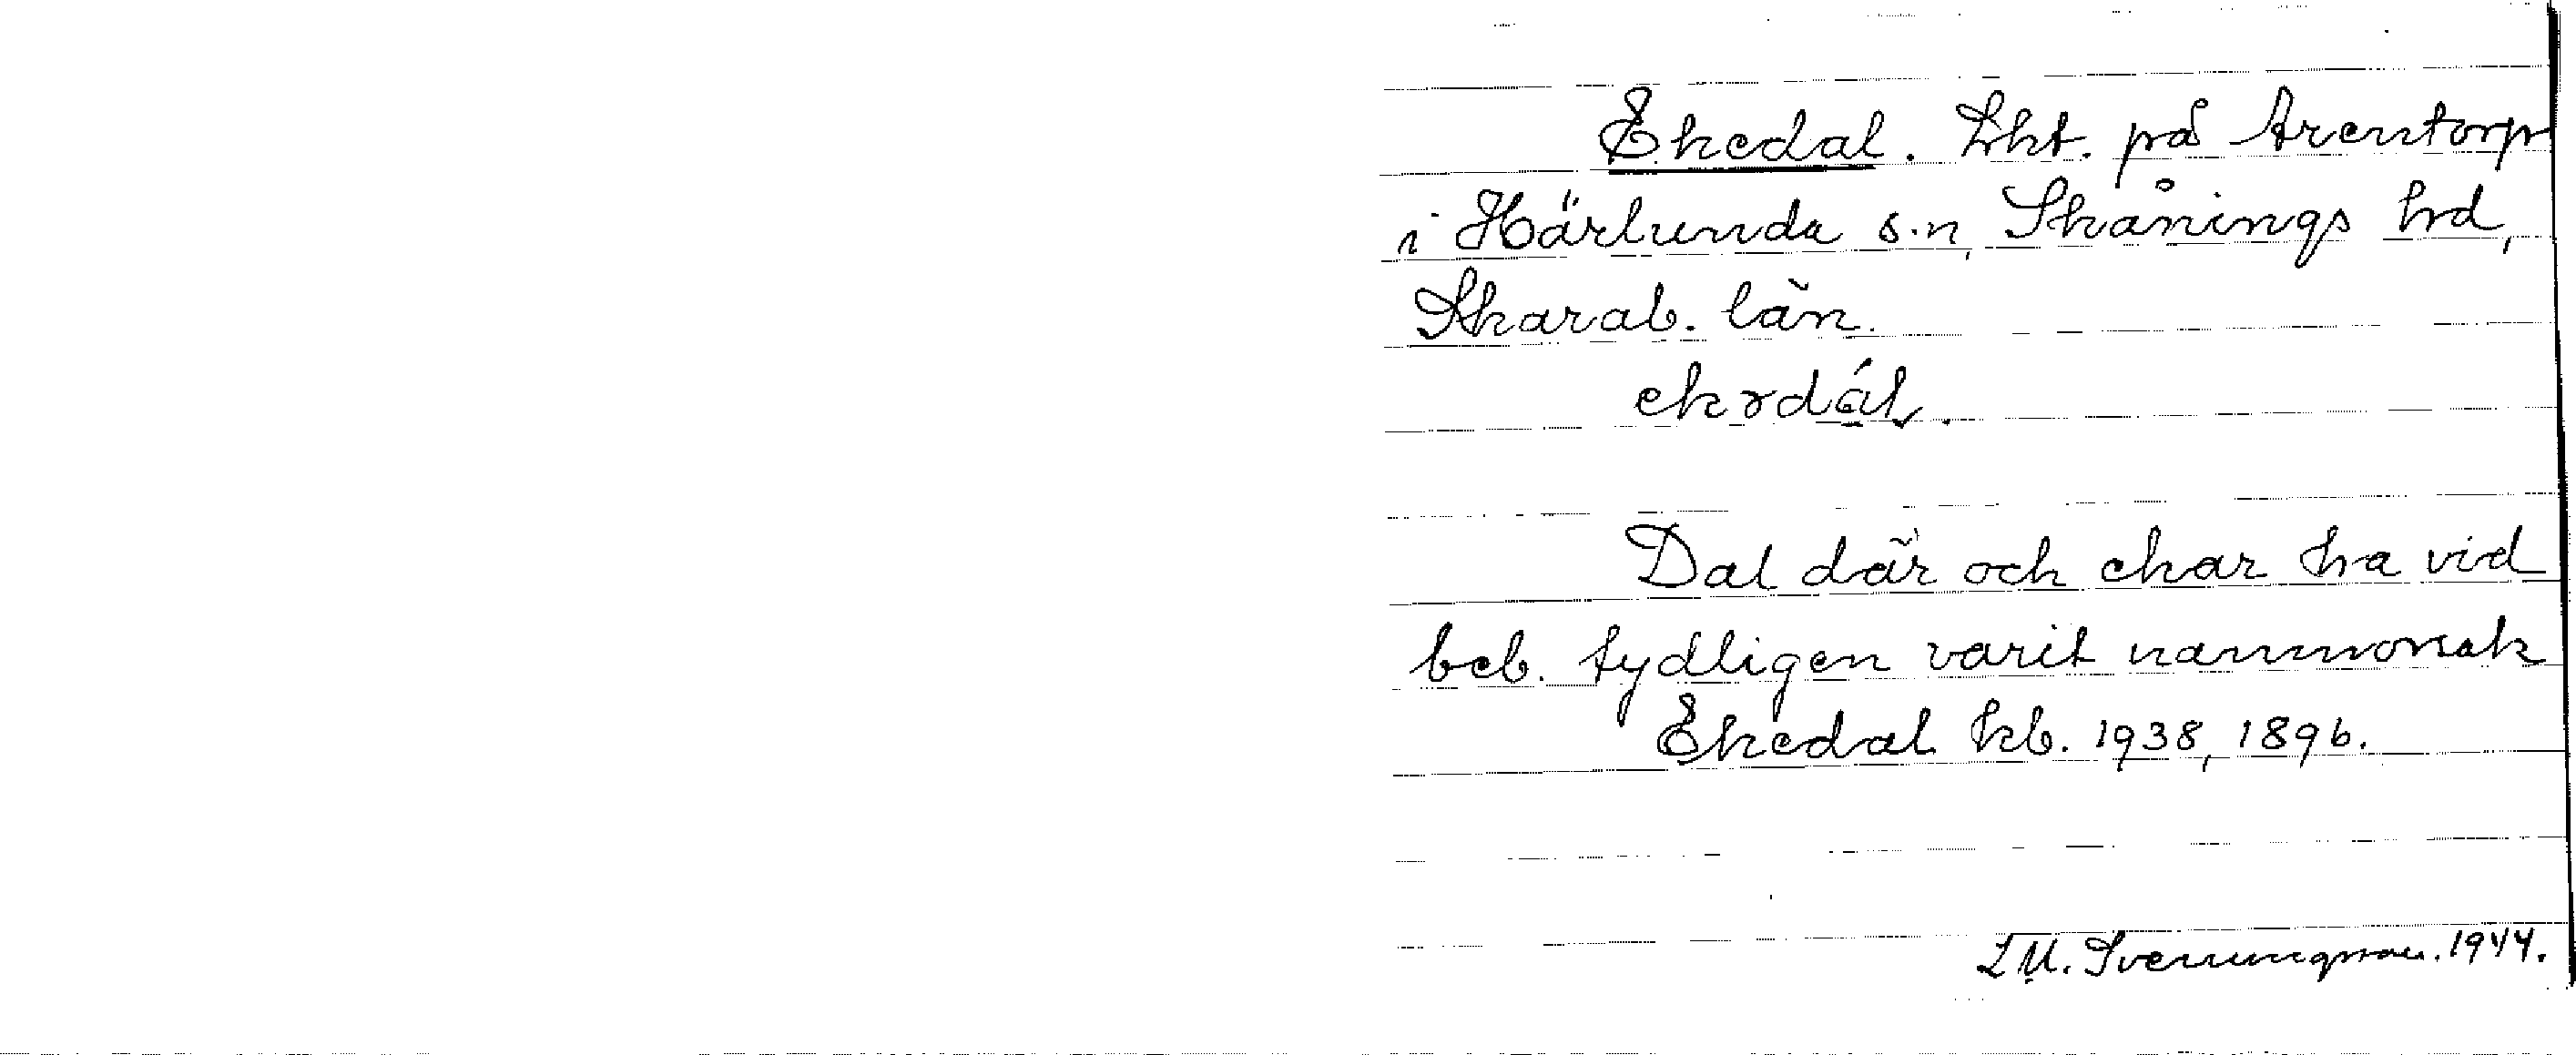 Ekedal. Lht. på Arentorp
i Härlunda s:n, Skånings hd,
Skarab. län.
Dal där och ekar ha vid
beb. tydligen varit namnorsak
Ekedal kb. 1938, 1896.
L M. Svenungsson. 1944.